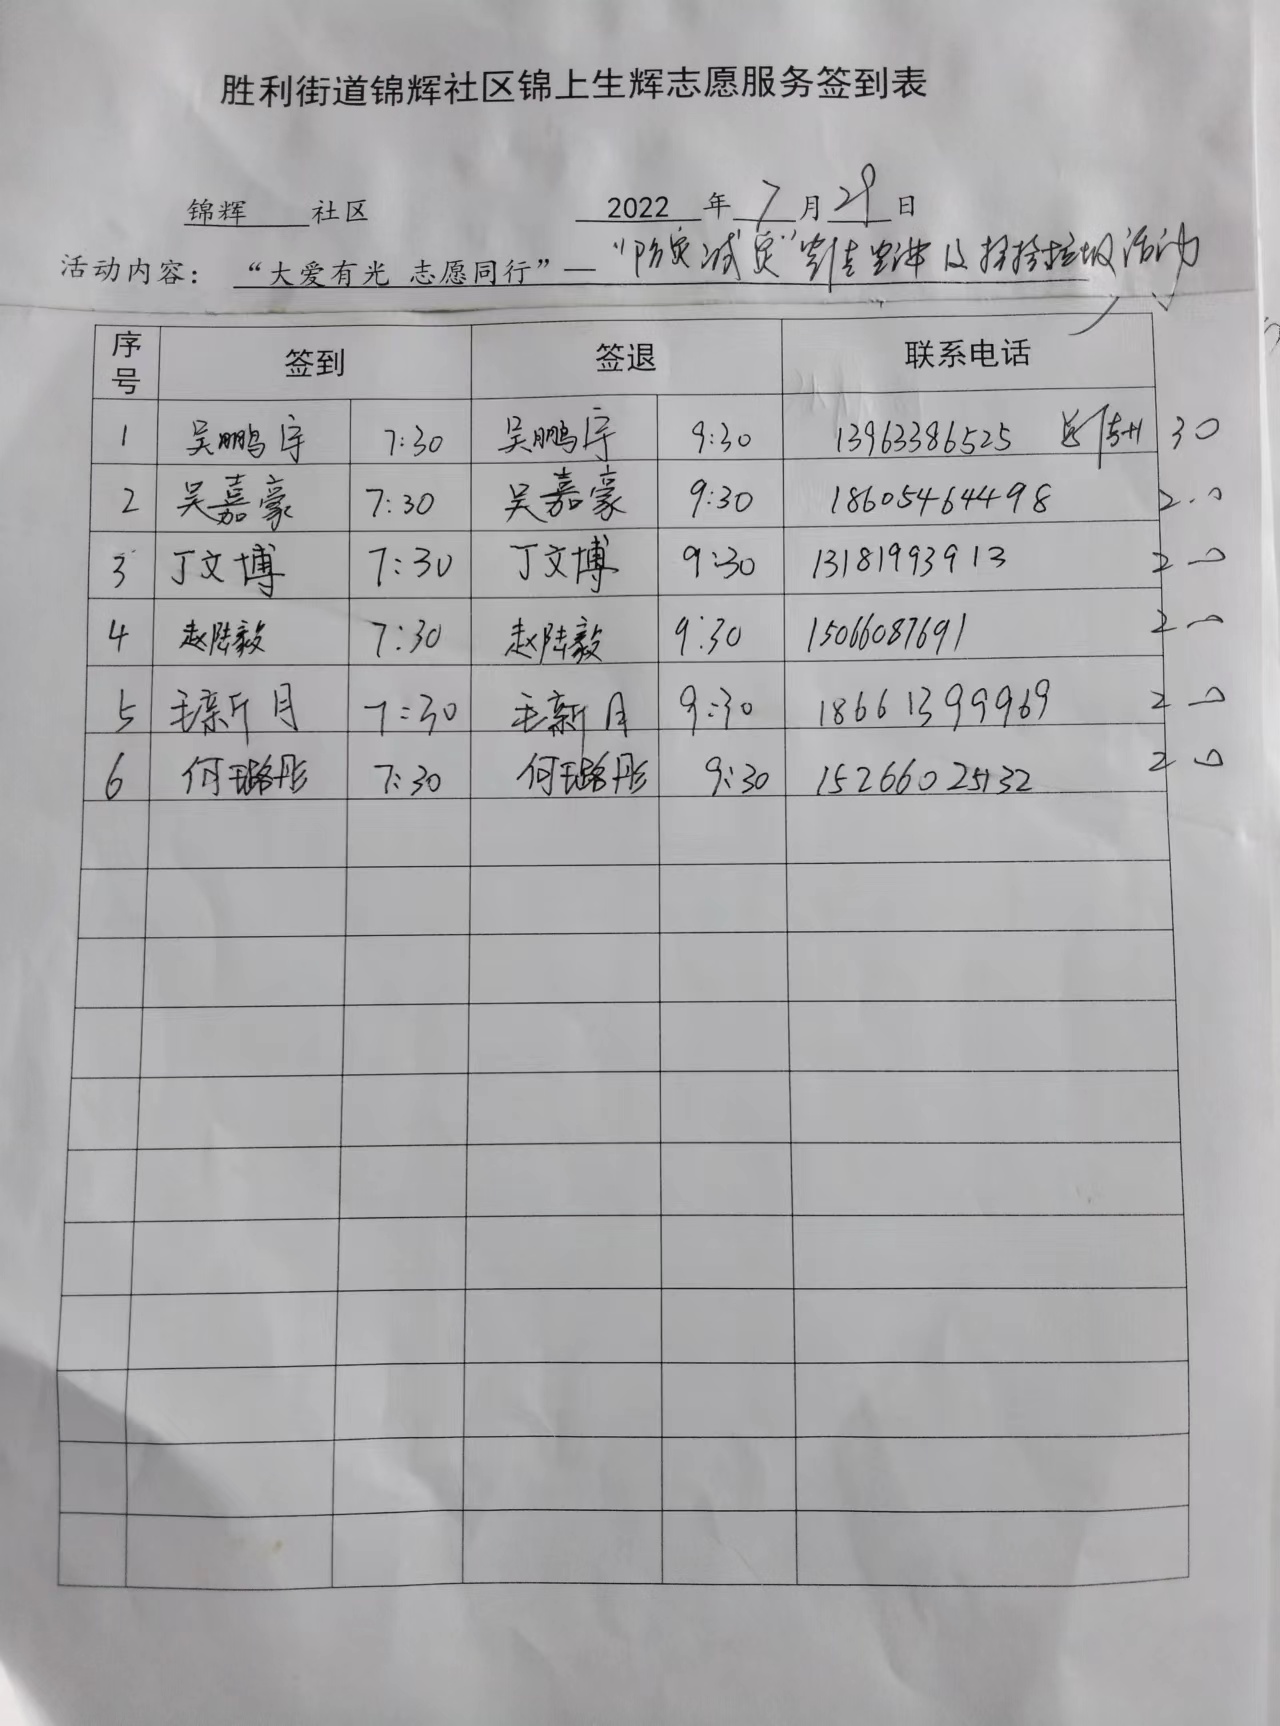 胜利街道锦辉社区锦上生辉志愿服务签到表
锦辉 社区 2022 年 7 月 29 日
活动内容： “大爱有光 志愿同行”— “防灾减灾”宣传宣讲及捡拾垃圾活动
序号 签到 签退 联系电话
1 吴鹏宇 7:30 吴鹏宇 9:30 13963386525 30
2 吴嘉豪 7:30 吴嘉豪 9:30 18605464498 2.0
3 丁文博 7:30 丁文博 9:30 13181993913 20
4 赵陆毅 7:30 赵陆毅 9:30 15066087691 20
5 毛新月 7:30 毛新月 9:30 18661399969 20
6 何璐彤 7:30 何璐彤 9:30 15266025132 20